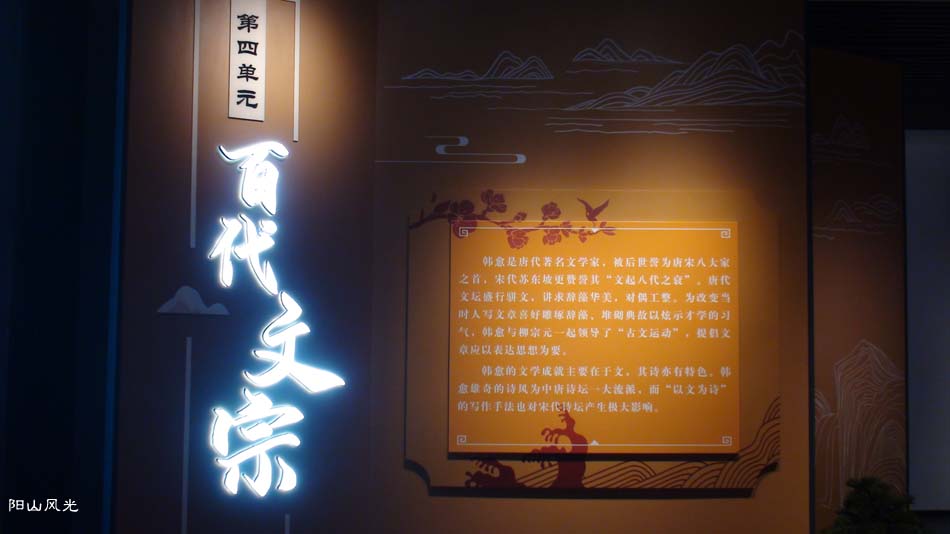 第四单元
百代文宗
韩愈是唐代著名文学家，被后世誉为唐宋八大家
之首，宋代苏东坡更赞誉其“文起八代之衰”。唐代
文坛盛行骈文，讲求辞藻华美，对偶工整。为改变当
时人写文章喜好雕琢辞藻、堆砌典故以炫示才学的习
气，韩愈与柳宗元一起领导了“古文运动”，提倡文
章应以表达思想为要。
韩愈的文学成就主要在于文，其诗亦有特色。韩
愈雄奇的诗风为中唐诗坛一大流派，而“以文为诗”
的写作手法也对宋代诗坛产生极大影响。
阳山风光